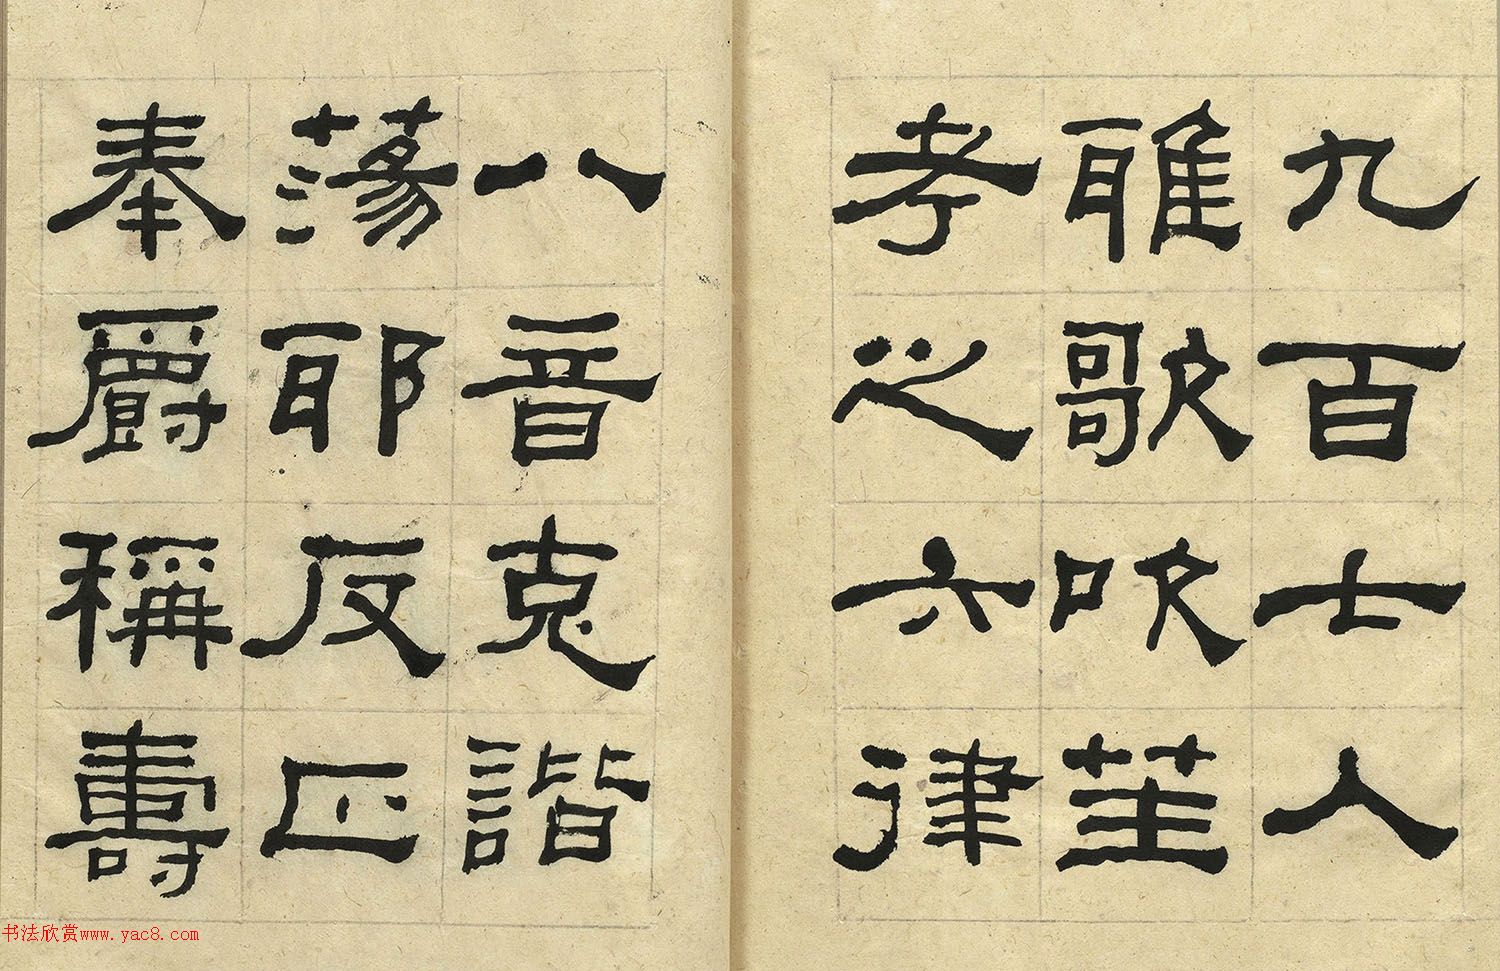 九百七人
雅歌吹笙
考之六律
八音克諧
蕩邪反正
奉爵稱壽
书法欣赏www.yac8.com